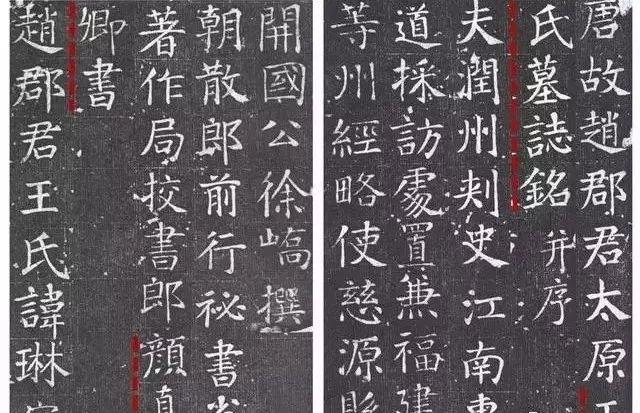 唐故趙郡君太原
氏墓誌銘并序
夫潤州刾史江南東
道採訪處置兼福建
等州經略使慈源縣
開國公徐嶠撰
朝散郎前行祕書省
著作局挍書郎顏真
卿書
趙郡君王氏諱琳